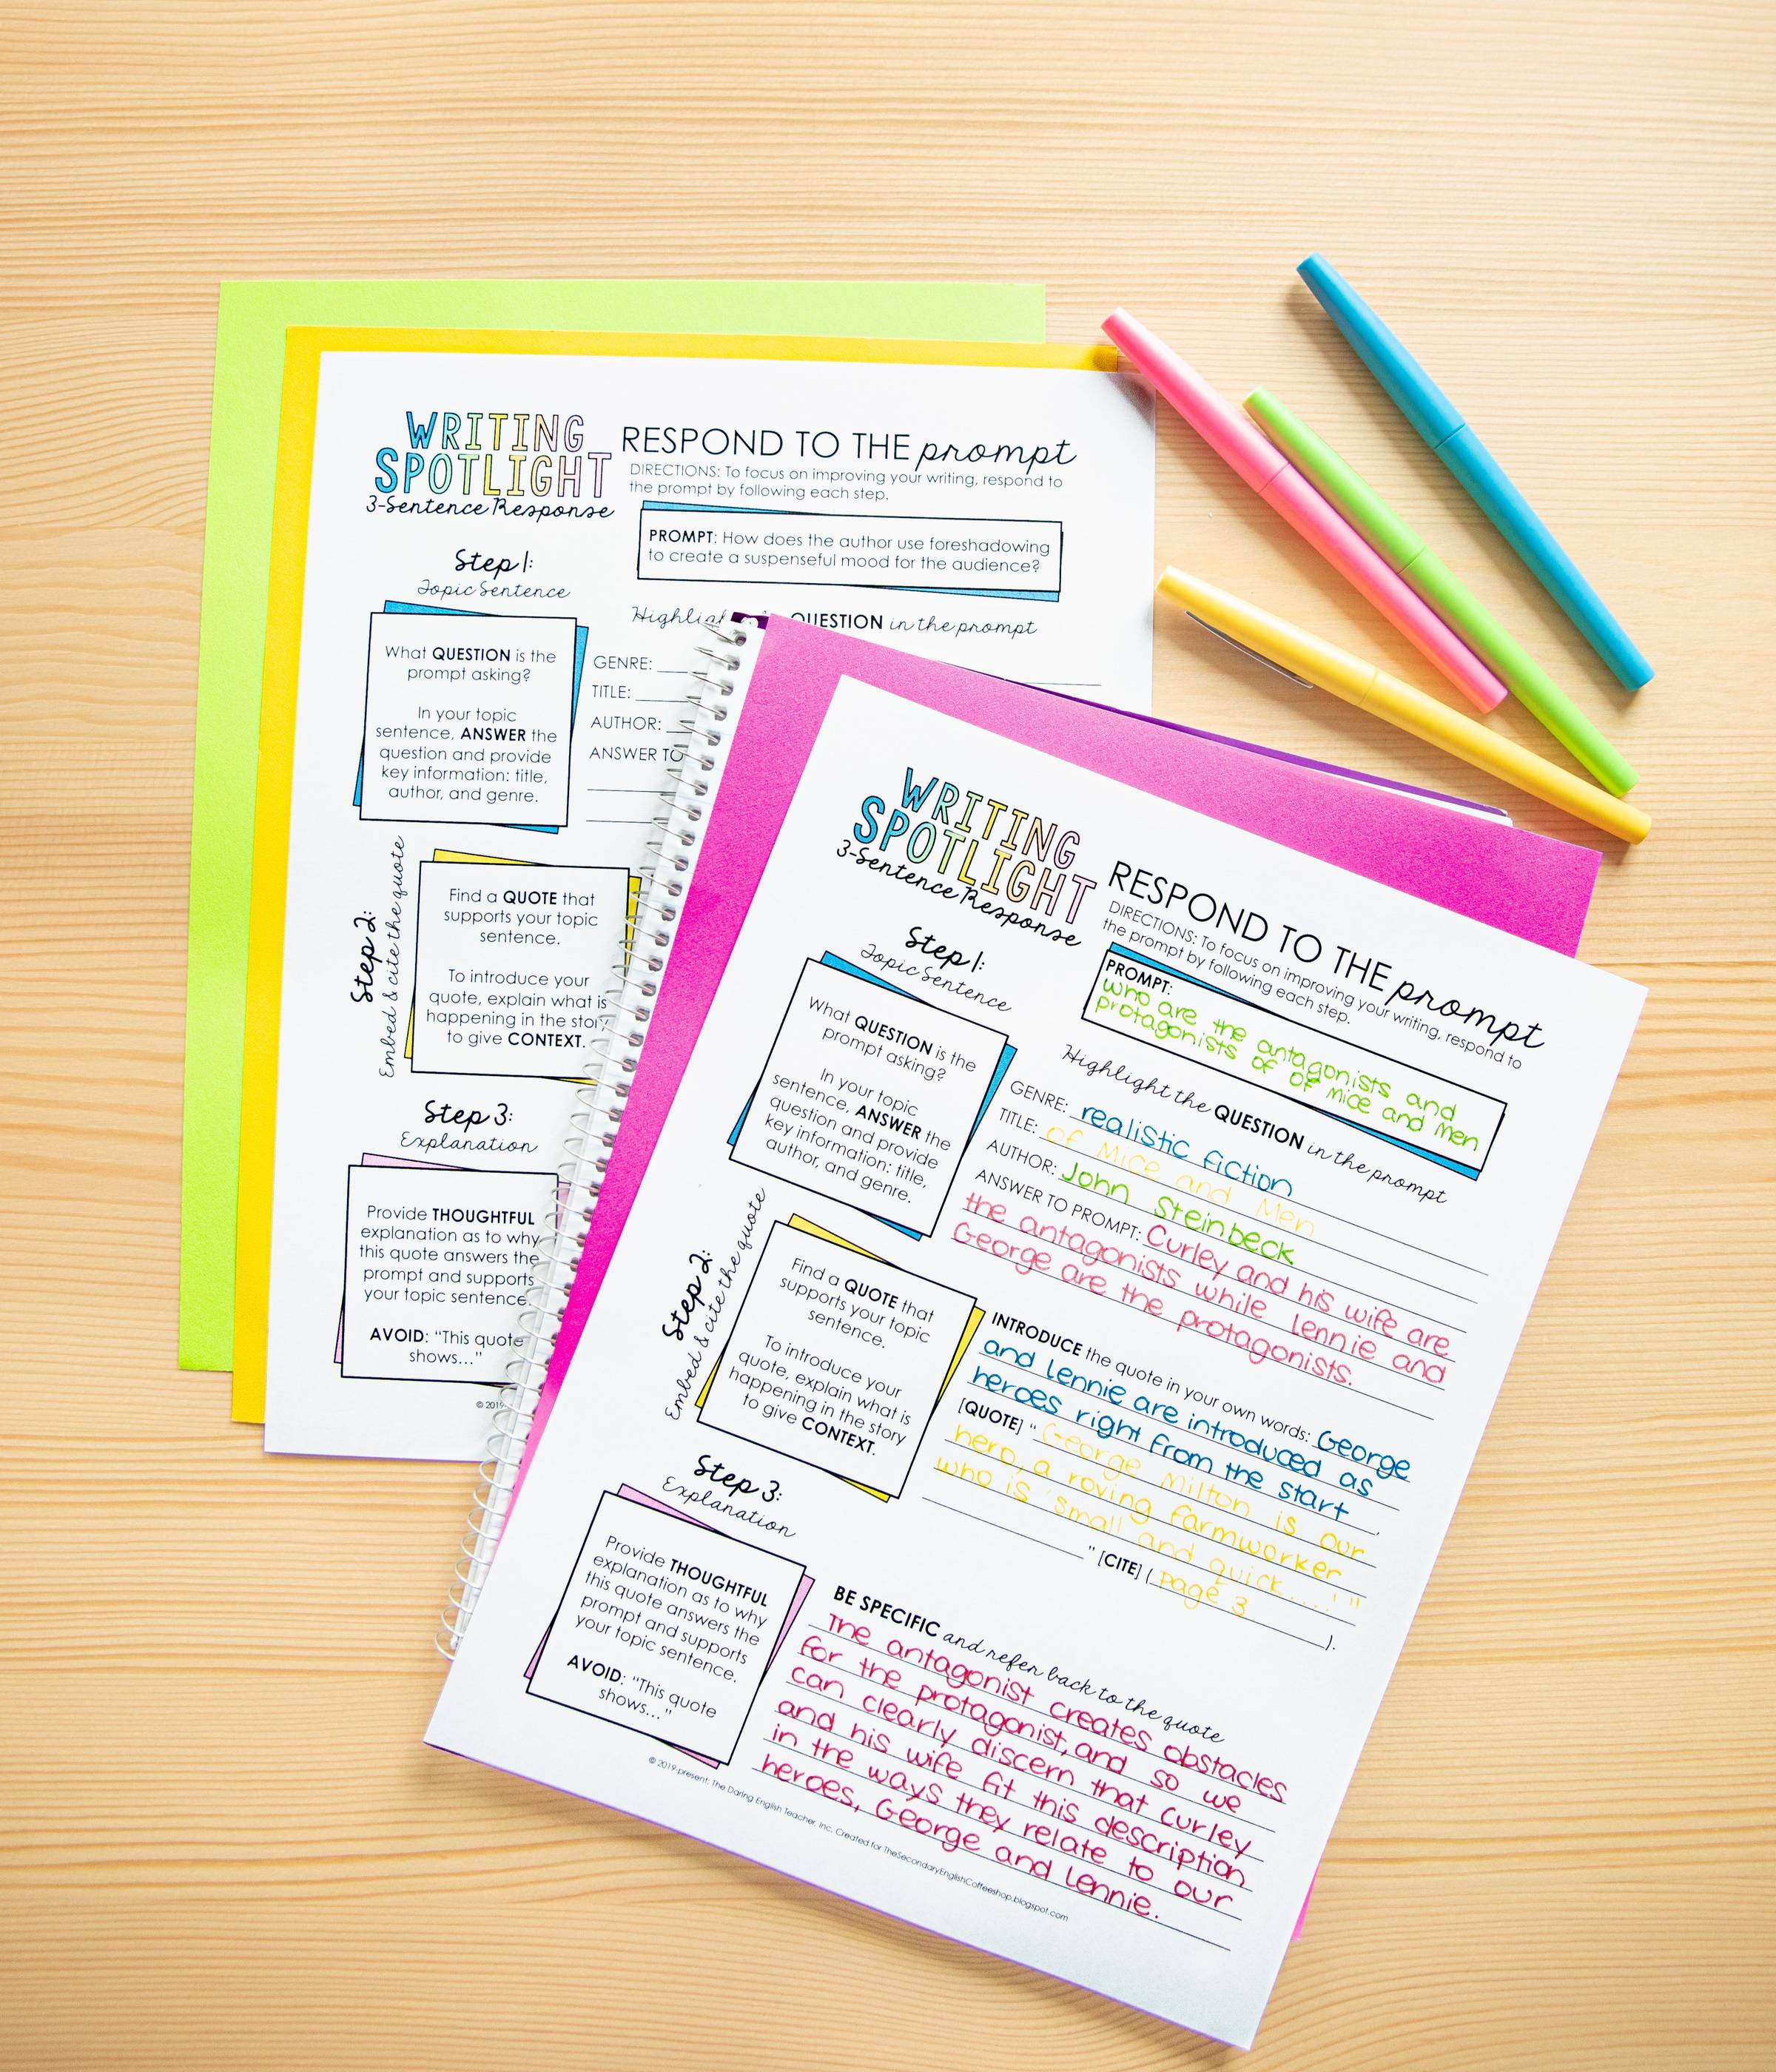 WRITING
SPOTLIGHT
3-Sentence Response
RESPOND TO THE prompt
DIRECTIONS: To focus on improving your writing, respond to
the prompt by following each step.
PROMPT: How does the author use foreshadowing
to create a suspenseful mood for the audience?
Step 1:
Topic Sentence
What QUESTION is the
prompt asking?
In your topic
sentence, ANSWER the
question and provide
key information: title,
author, and genre.
QUESTION in the prompt
GENRE:
TITLE:
AUTHOR:
ANSWER TO
Step 2:
Embed & cite the quote
Find a QUOTE that
supports your topic
sentence.
To introduce your
quote, explain what is
happening in the story
to give CONTEXT.
Step 3:
Explanation
Provide THOUGHTFUL
explanation as to why
this quote answers the
prompt and supports
your topic sentence.
AVOID: "This quote
shows..."
© 2019
WRITING
SPOTLIGHT
3-Sentence Response
RESPOND TO THE prompt
DIRECTIONS: To focus on improving your writing, respond to
the prompt by following each step.
PROMPT:
who are the antagonists and
protagonists of Of Mice and Men
Step 1:
Topic Sentence
What QUESTION is the
prompt asking?
In your topic
sentence, ANSWER the
question and provide
key information: title,
author, and genre.
Highlight the QUESTION in the prompt
GENRE: realistic fiction
TITLE: Of Mice and Men
AUTHOR: John Steinbeck
ANSWER TO PROMPT: Curley and his wife are
the antagonists while Lennie and
George are the protagonists.
Step 2:
Embed & cite the quote
Find a QUOTE that
supports your topic
sentence.
To introduce your
quote, explain what is
happening in the story
to give CONTEXT.
INTRODUCE the quote in your own words: George
and Lennie are introduced as
heroes right from the start
[QUOTE] " George Milton is our
hero, a roving farmworker
who is 'small and quick....'"
" [CITE] (page 3
).
Step 3:
Explanation
Provide THOUGHTFUL
explanation as to why
this quote answers the
prompt and supports
your topic sentence.
AVOID: "This quote
shows..."
BE SPECIFIC and refer back to the quote
The antagonist creates obstacles
for the protagonist, and so we
can clearly discern that Curley
and his wife fit this description
in the ways they relate to our
heroes, George and Lennie.
© 2019-present: The Daring English Teacher, Inc. Created for TheSecondaryEnglishCoffeeshop.blogspot.com